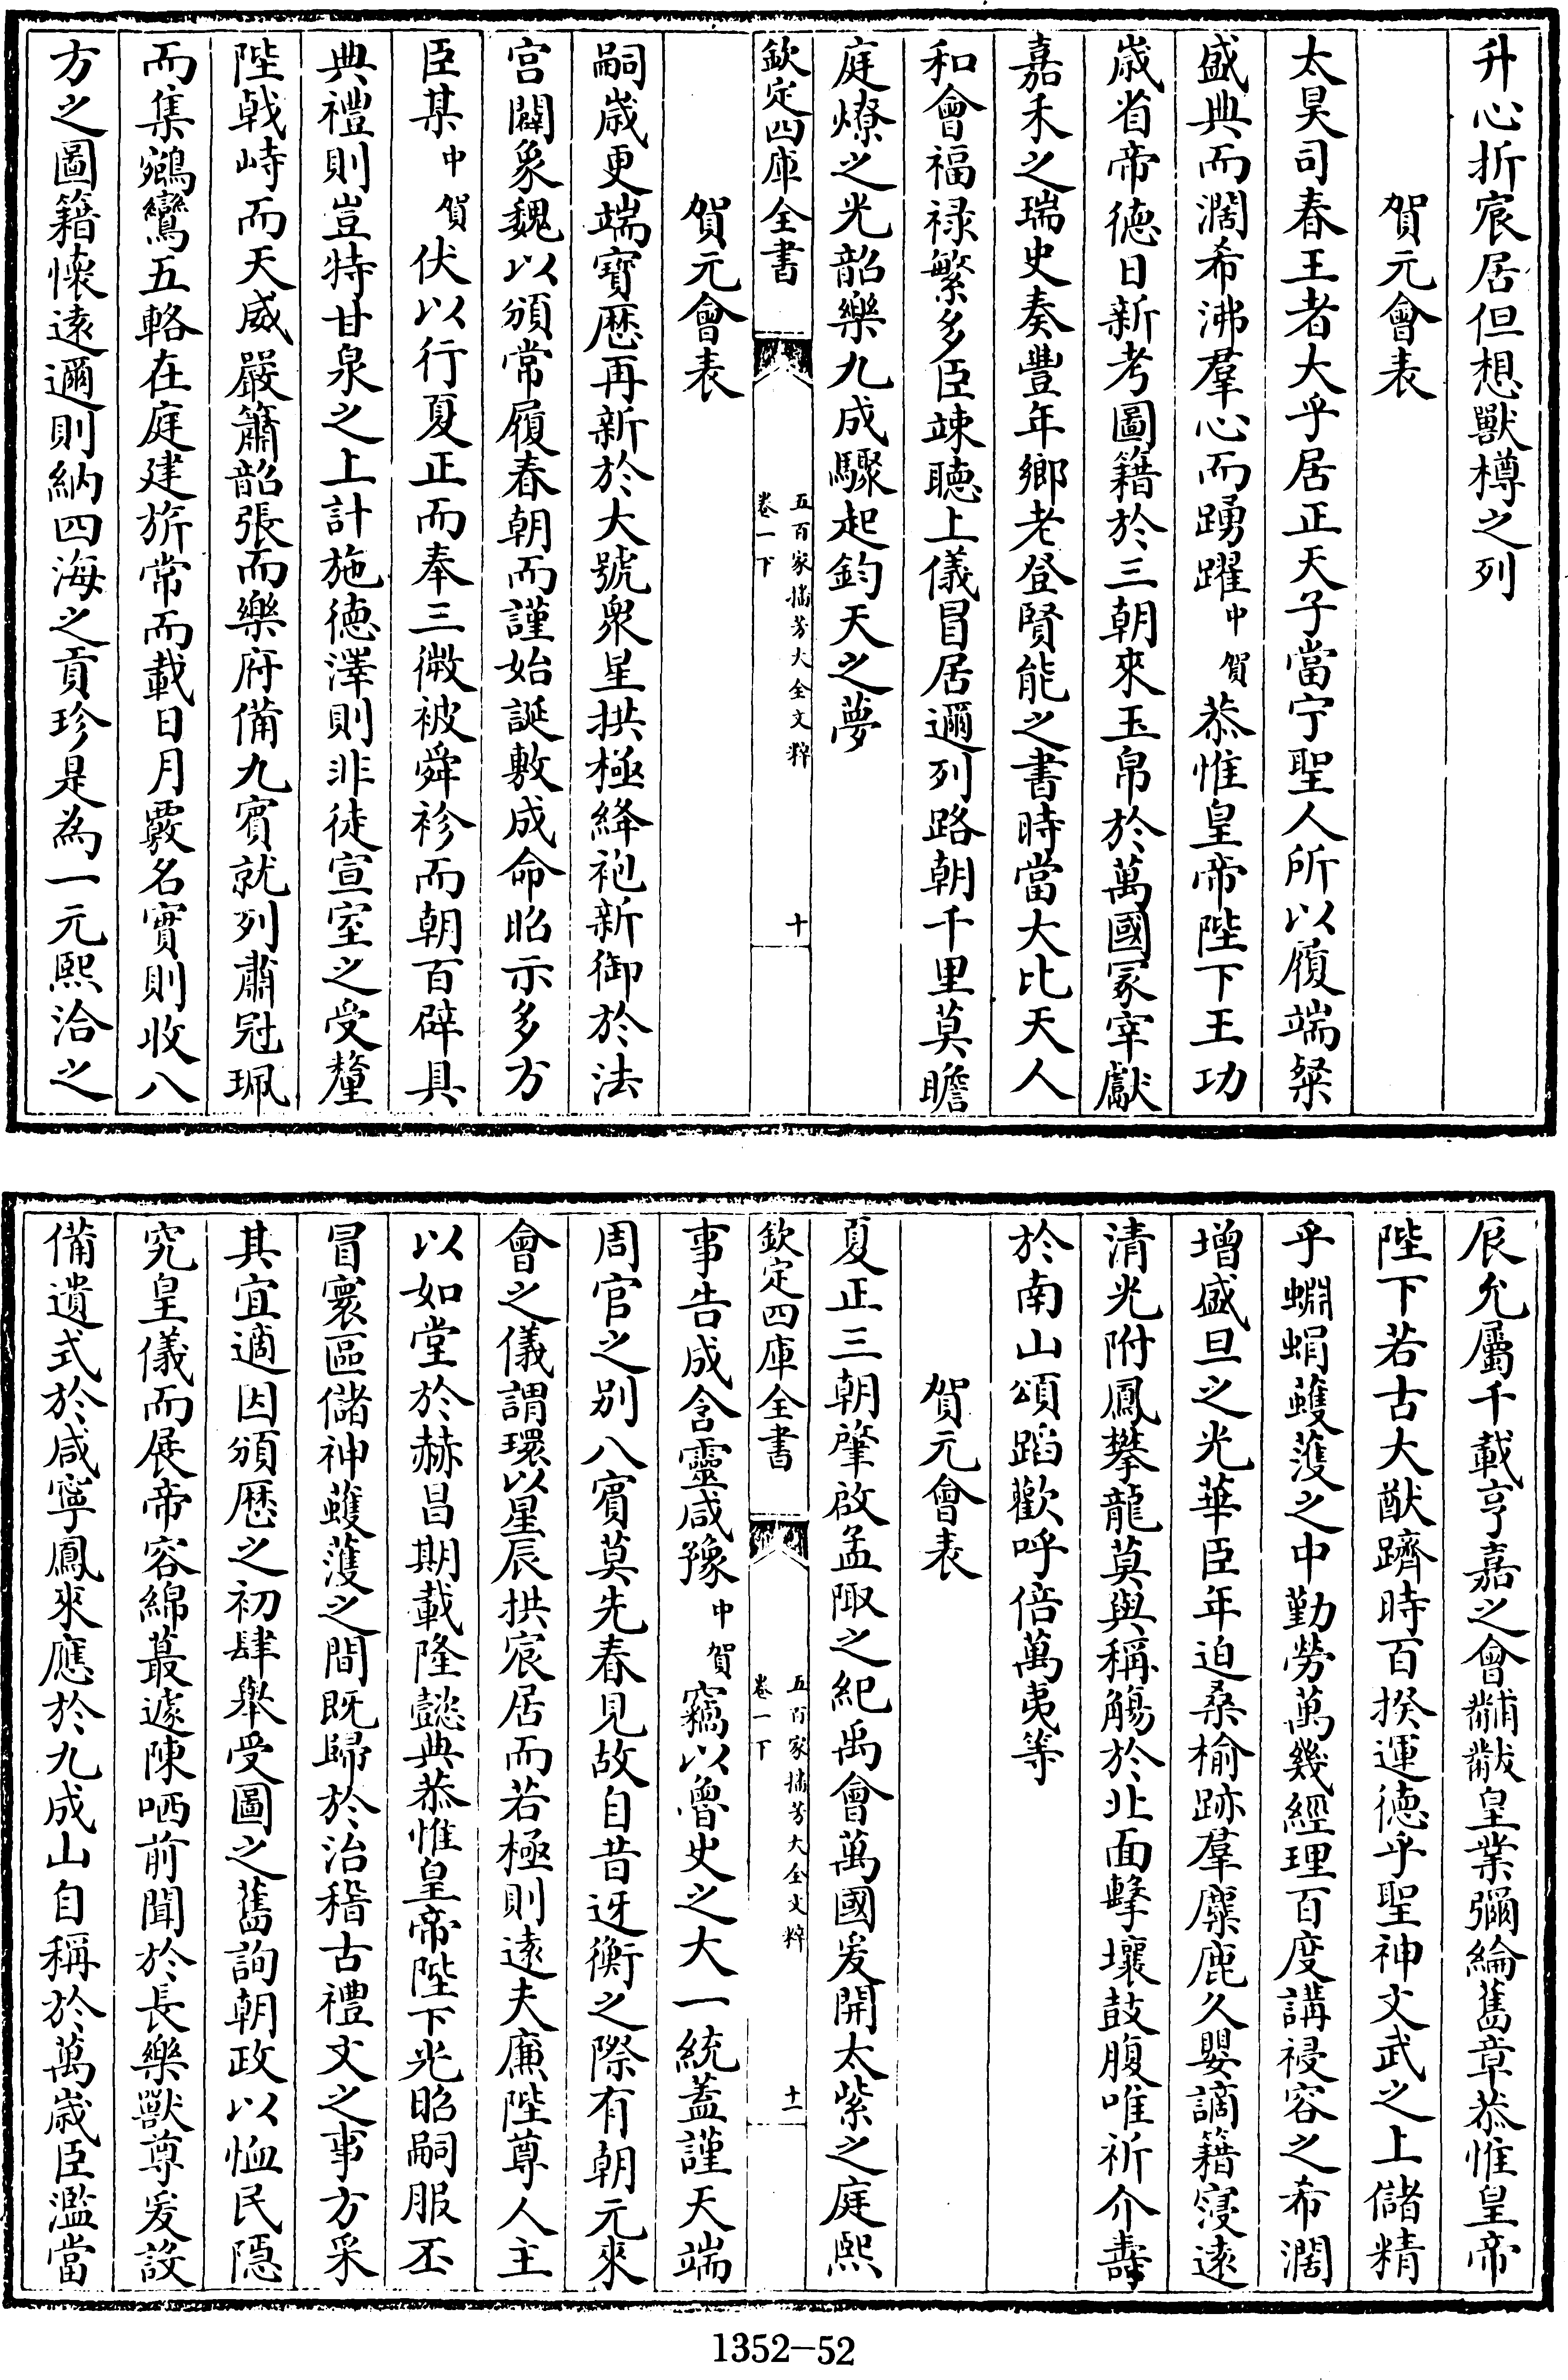 升心折宸居但想獸樽之列
賀元會表
太昊司春王者大乎居正天子當宁聖人所以履端粲
盛典而濶希沸羣心而踴躍中賀恭惟皇帝陛下王功
歲省帝德日新考圖籍於三朝來玉帛於萬國冢宰獻
嘉禾之瑞史奏豐年鄉老登賢能之書時當大比天人
和會福禄繁多臣竦聽上儀冒居邇列路朝千里莫瞻
庭燎之光韶樂九成驟起鈞天之夢
欽定四庫全書
五百家播芳大全文粹
卷一下
十
賀元會表
嗣歲更端寶厯再新於大號衆星拱極絳袍新御於法
宫闢象魏以頒常履春朝而謹始誕敷成命昭示多方
臣某中賀伏以行夏正而奉三微被舜袗而朝百辟具
典禮則豈特甘泉之上計施德澤則非徒宣室之受釐
陛戟峙而天威嚴簫韶張而樂府備九賓就列肅冠珮
而集鵷鸞五輅在庭建旂常而載日月覈名實則收八
方之圖籍懷遠邇則納四海之貢珍是為一元熙洽之
辰允屬千載亨嘉之會黼黻皇業彌綸舊章恭惟皇帝
陛下若古大猷躋時百揆運德乎聖神文武之上儲精
乎蜵蜎蠖濩之中勤勞萬幾經理百度講祲容之希濶
增盛旦之光華臣年迫桑榆跡羣麋鹿久嬰謫籍寖遠
清光附鳳攀龍莫與稱觴於北面擊壤鼓腹唯祈介壽
於南山頌蹈歡呼倍萬夷等
賀元會表
夏正三朝肇啟孟陬之紀禹會萬國爰開太紫之庭熙
欽定四庫全書
五百家播芳大全文粹
卷一下
十一
事告成含靈咸豫中賀竊以魯史之大一統蓋謹天端
周官之别八賓莫先春見故自昔迓衡之際有朝元來
會之儀謂環以星辰拱宸居而若極則遠夫廉陛尊人主
以如堂於赫昌期載隆懿典恭惟皇帝陛下光昭嗣服丕
冒寰區儲神蠖濩之間既歸於治稽古禮文之事方采
其宜適因頒厯之初肆舉受圖之舊詢朝政以恤民隱
究皇儀而展帝容綿蕞遂陳哂前聞於長樂獸尊爰設
備遺式於咸寧鳳來應於九成山自稱於萬歲臣濫當
1352-52